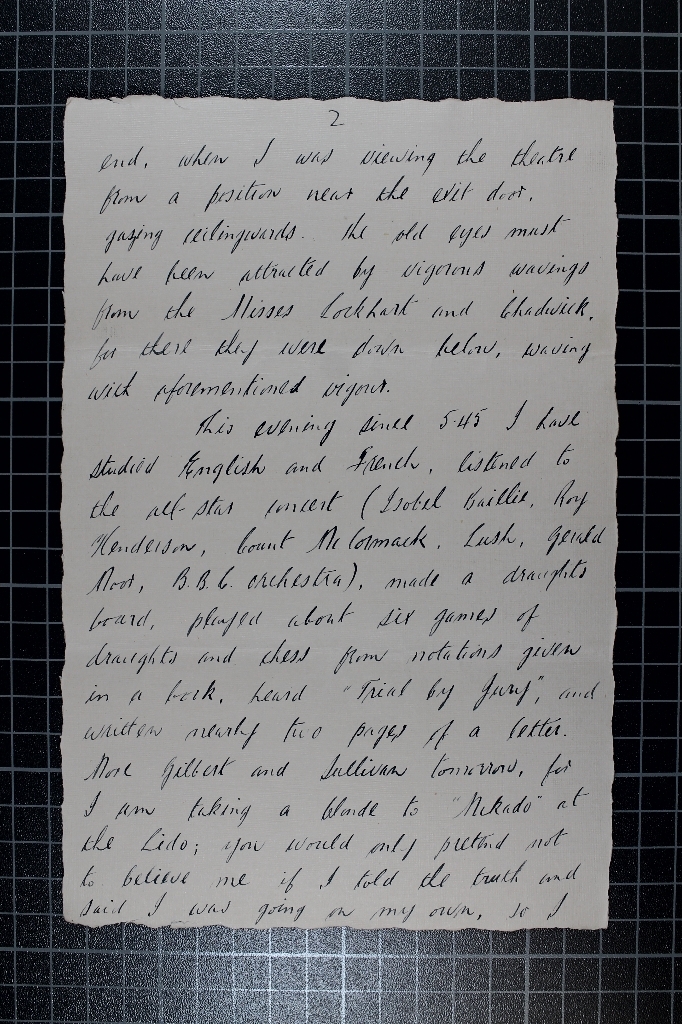 2
end, when I was viewing the theatre
from a position near the exit door,
gazing ceilingwards. The old eyes must
have been attracted by vigorous wavings
from the Misses Lockhart and Chadwick,
for there they were down below, waving
with aforementioned vigour.
This evening since 5.45 I have
studied English and French, listened to
the all-star concert (Isobel Baillie, Roy
Henderson, Count McCormack, Lush, Gerald
Moor, B.B.C. orchestra), made a draughts
board, played about six games of
draughts and chess from notations given
in a book, heard "Trial by Jury", and
written nearly two pages of a letter.
More Gilbert and Sullivan tomorrow, for
I am taking a blonde to "Mikado" at
the Lido; you would only pretend not
to believe me if I told the truth and
said I was going on my own, so I